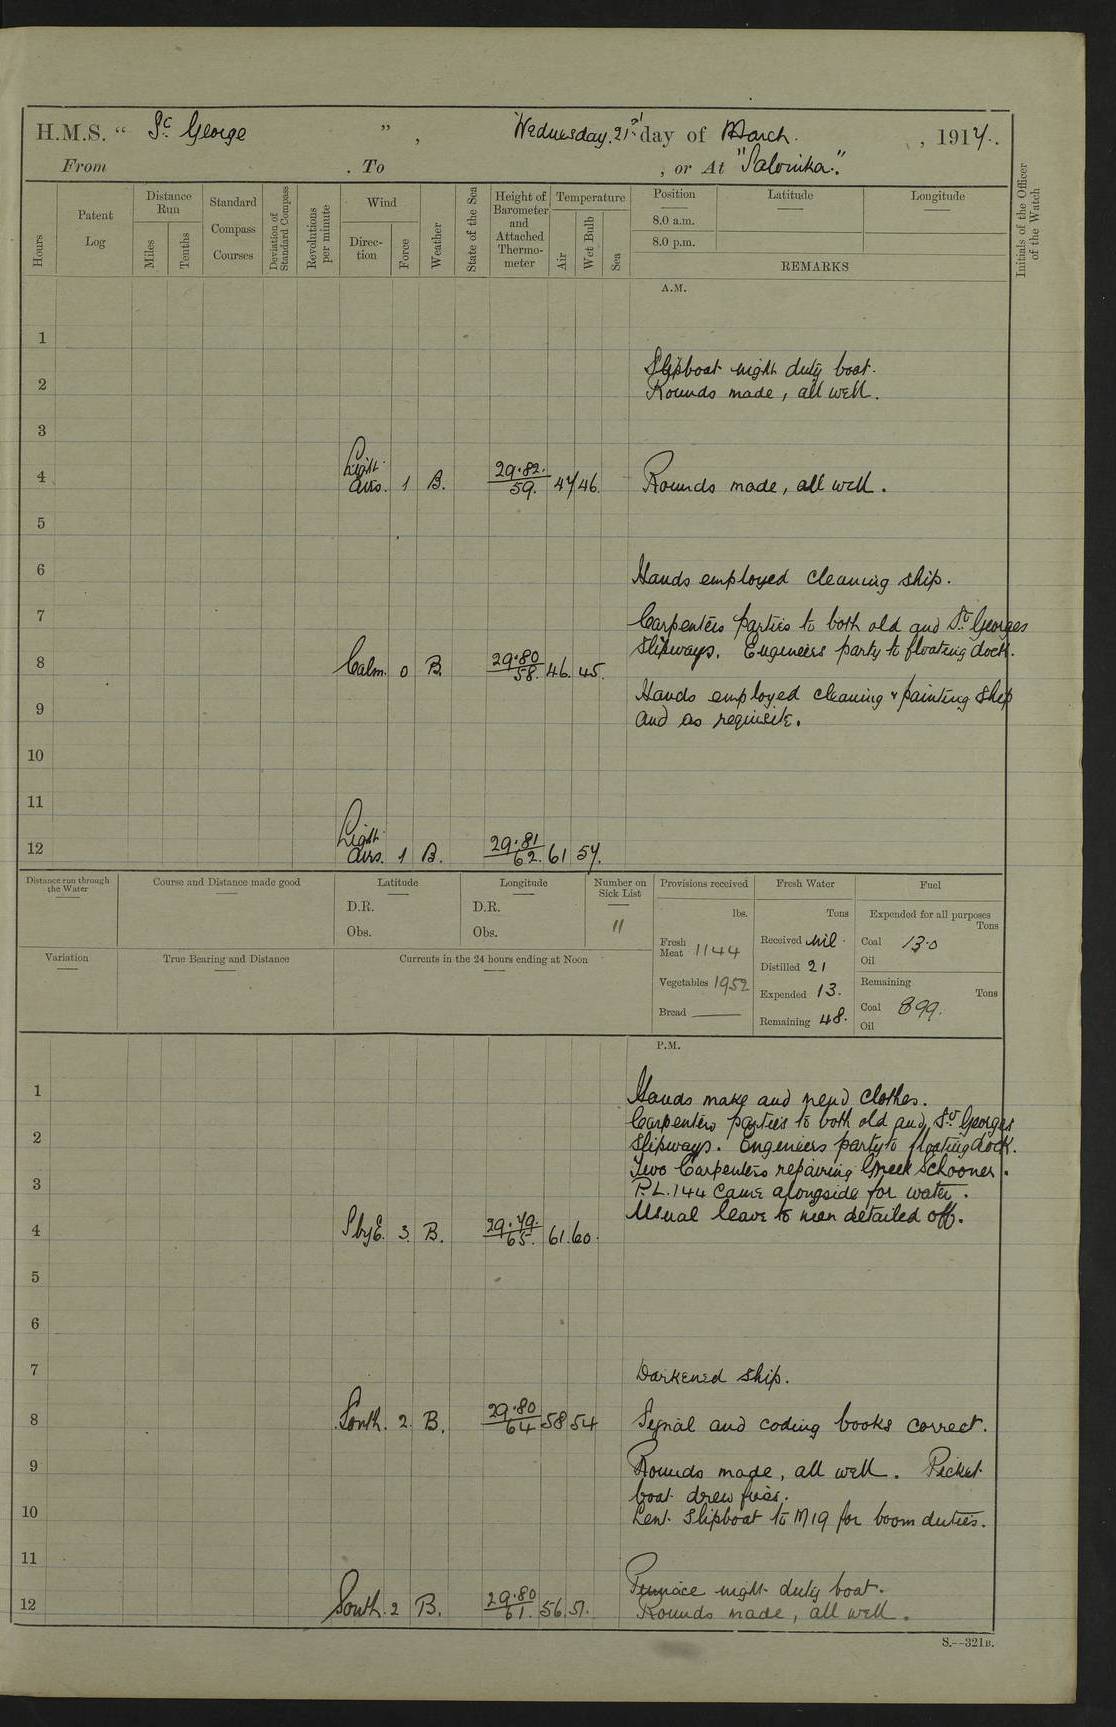 H.M.S. " St George " , Wednesday. 21st day of March. , 1917.
From . To , or At "Salonika".
Hours
Patent Log
Distance Run
Miles
Tenths
Standard Compass Courses
Deviation of Standard Compass
Revolutions per minute
Wind
Direc-tion
Force
Weather
State of the Sea
Height of Barometer and Attached Thermo-meter
Temperature
Air
Wet Bulb
Sea
Position
Latitude
Longitude
8.0 a.m.
8.0 p.m.
REMARKS
Initials of the Officer of the Watch
A.M.
1
Slipboat night duty boat.
2
Rounds made, all well.
3
Light
4 airs. 1 B. 29.82. 59. 47 46. Rounds made, all well.
5
6 Hands employed cleaning ship.
7 Carpenters parties to both old and St. Georges
slipways. Engineers party to floating dock.
8 Calm. 0 B. 29.80 58. 46. 45.
Hands employed cleaning & painting ship
9 and as requisite.
10
11
Light
12 airs. 1 B. 29.81 62. 61 57.
Distance run through the Water
Course and Distance made good
Latitude
D.R.
Obs.
Longitude
D.R.
Obs.
Number on Sick List
11
Provisions received
lbs.
Fresh Meat 1144
Vegetables 1952
Bread ———
Fresh Water
Tons
Received Nil.
Distilled 21
Expended 13.
Remaining 48.
Fuel
Expended for all purposes
Tons
Coal 13.0
Oil
Remaining
Tons
Coal 899.
Oil
Variation
True Bearing and Distance
Currents in the 24 hours ending at Noon
P.M.
1 Hands make and mend clothes.
Carpenters parties to both old and St. Georges
2 slipways. Engineers party to floating dock.
Two Carpenters repairing Greek Schooner.
3 P.L. 144 came alongside for water.
Usual leave to men detailed off.
4 S by E. 3. B. 29.79. 65. 61. 60.
5
6
7 Darkened ship.
8 South. 2 B. 29.80 64 58 54 Signal and coding books correct.
9 Rounds made, all well. Picket
boat drew fires.
10 Lent slipboat to M19 for boom duties.
11
Pinnace night duty boat.
12 South. 2 B. 29.80 61. 56. 51. Rounds made, all well.
S.—321B.